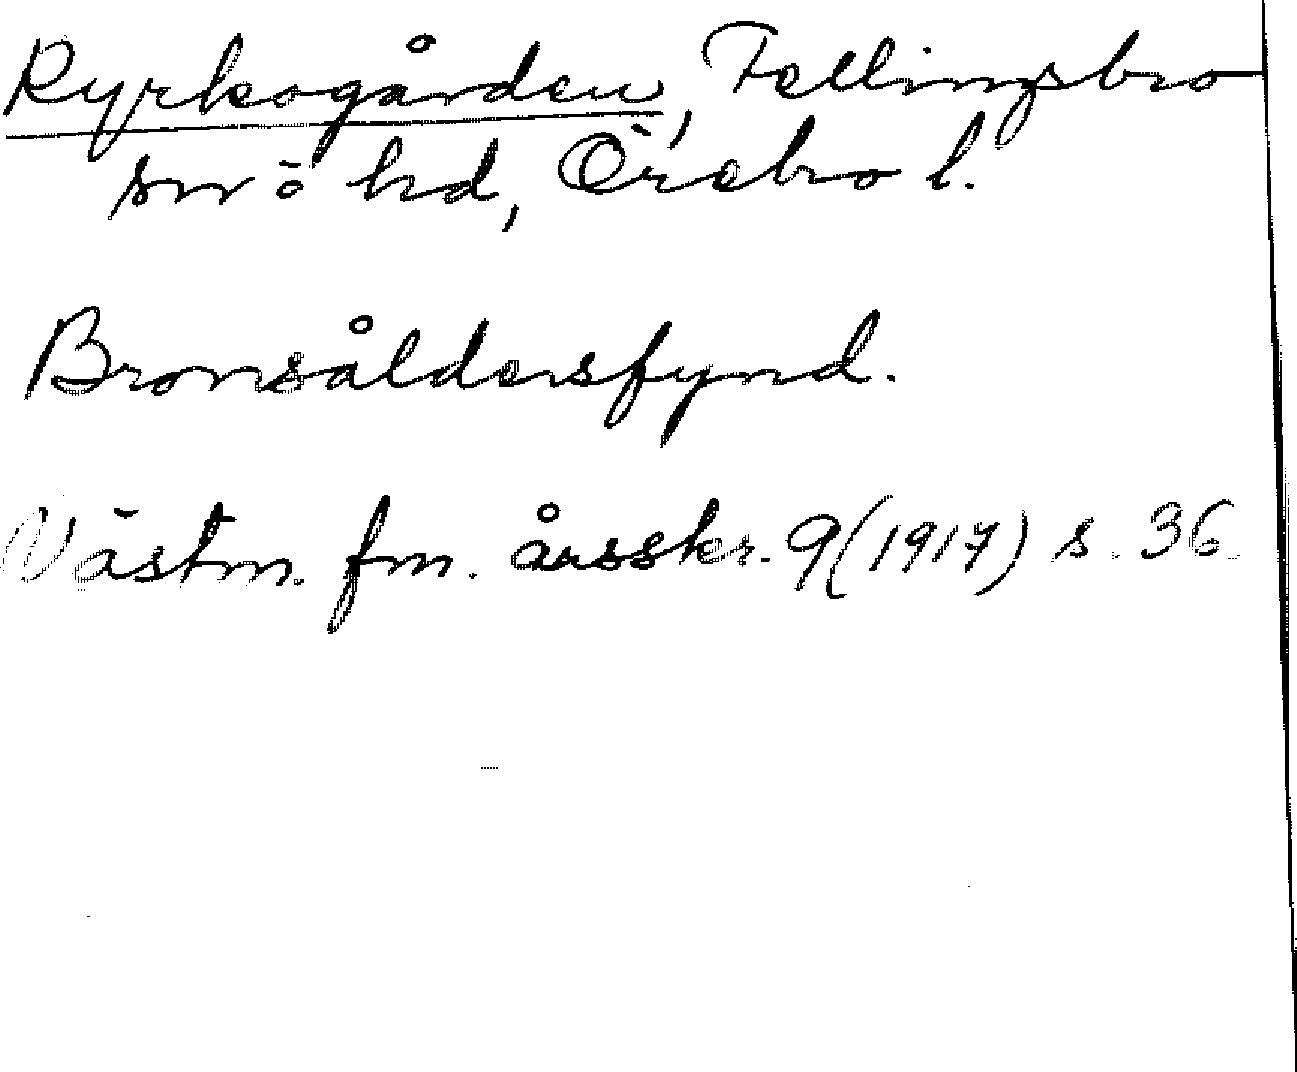 Ryrkogården, Fellingsbro
sn o hd, Örebro l.
Bronsåldersfynd.
Västm. fm. årsskr. 9 (1917) s. 36.